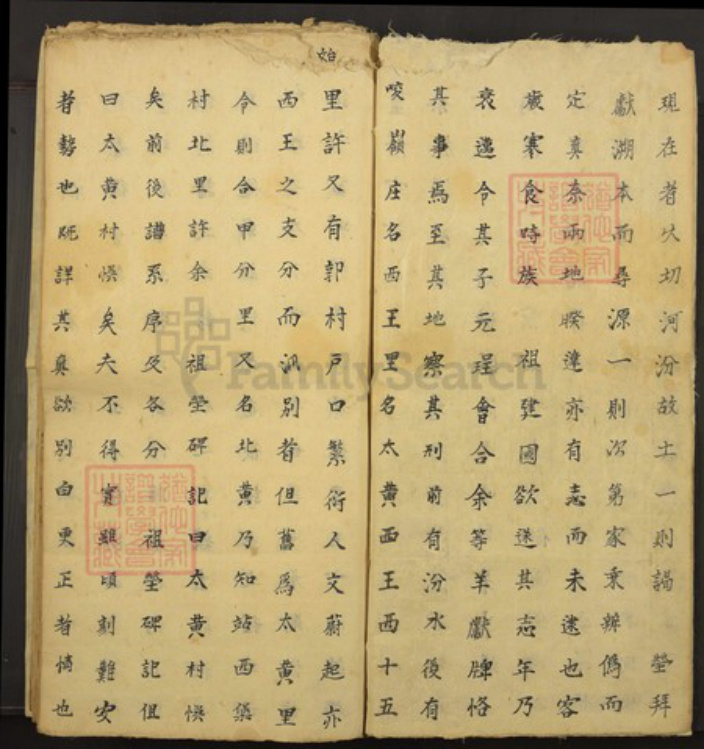 現在者火切河汾故土一則謁 塋拜
獻溯本而尋源一則次第家乘辨偽而
定真奈兩地暌違亦有志而未逮也客
歲寒食時族 祖建國欲遂其志年乃
衰邁令其子元珵會合余等羊獻牌恪
其事焉至其地察其利前有汾水後有
嶺庄名西王里名太黃西王西十五
里許又有郭村戶口繁衍人文蔚起亦
始
西王之支分而派別者但舊為太黃里
今則合甲分里又名北黃乃知站西渠
村北里許余 祖塋碑記曰太黃村悞
矣前後譜系序及各分 祖塋碑記俱
曰太黃村悞矣夫不得實雖頃刻難安
者勢也既詳其真欲別白更正者情也
FamilySearch